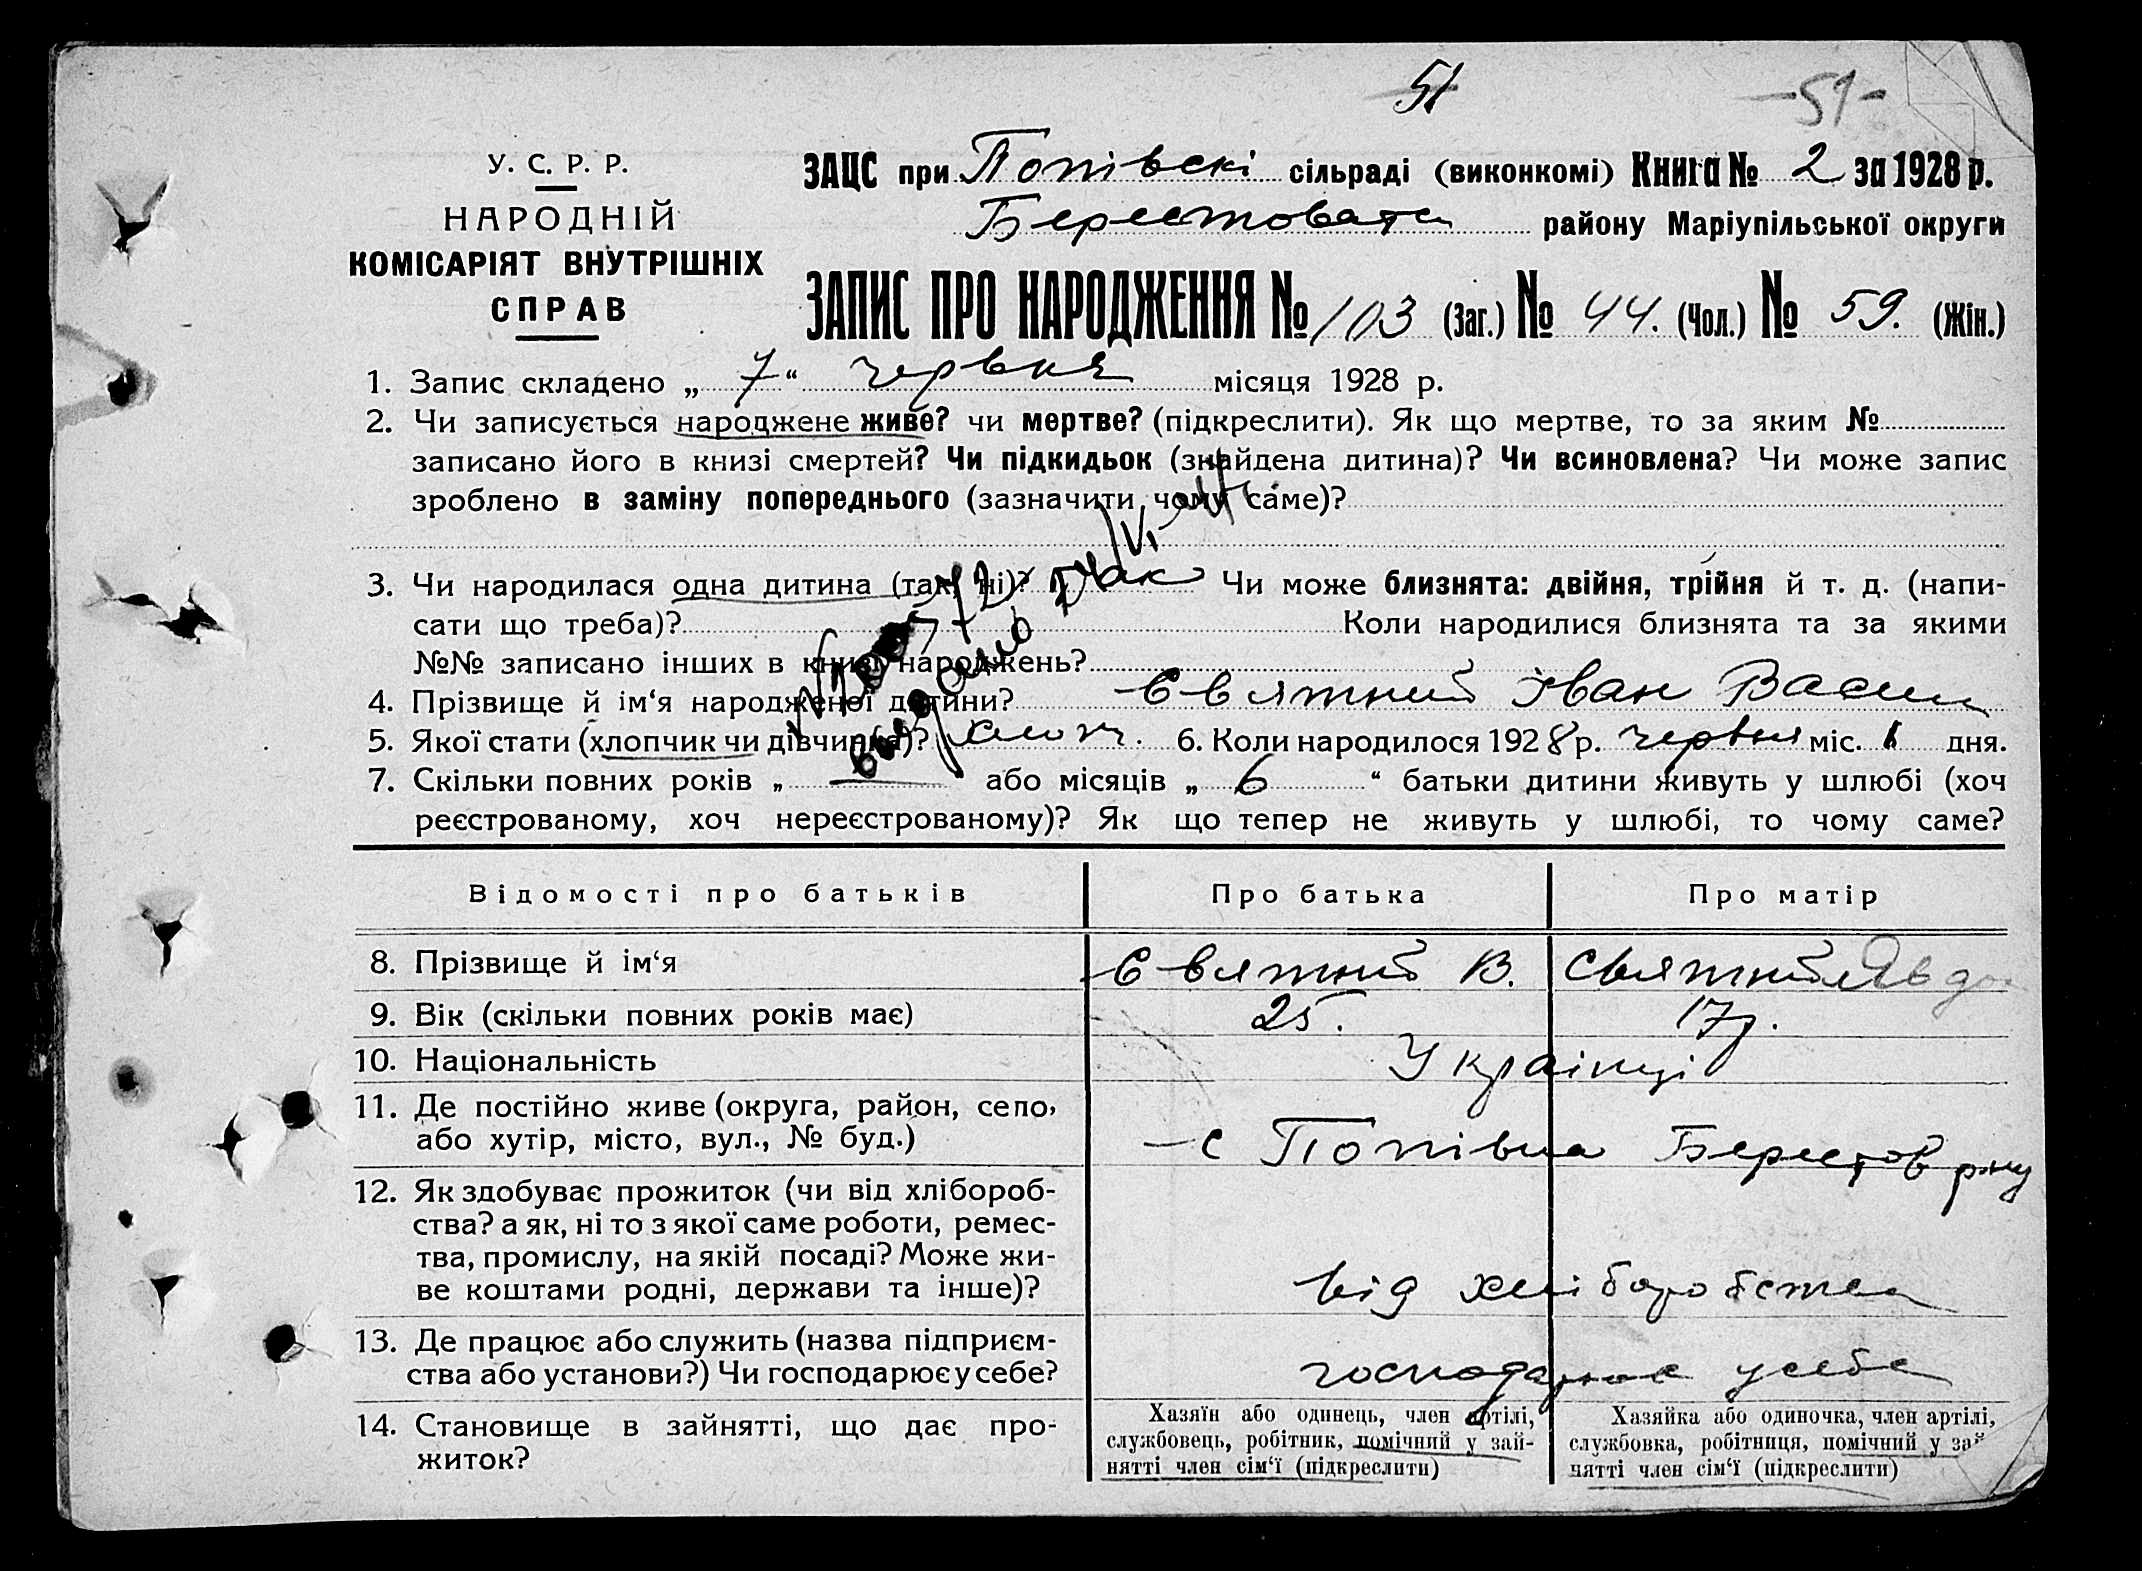 51
-51-
У. С. Р. Р.
НАРОДНІЙ
КОМІСАРІЯТ ВНУТРІШНІХ
СПРАВ
ЗАЦС при Попівскі сільраді (виконкомі) Книга № 2 за 1928 р.
Берестовата району Маріупільської округи
ЗАПИС ПРО НАРОДЖЕННЯ № 103 (Заг.) № 44. (Чол.) № 59. (Жін.)
1. Запис складено „ 7 “ червня місяця 1928 р.
2. Чи записується народжене живе? чи мертве? (підкреслити). Як що мертве, то за яким №
записано його в книзі смертей? Чи підкидьок (знайдена дитина)? Чи всиновлена? Чи може запис
зроблено в заміну попереднього (зазначити чому саме)?
3. Чи народилася одна дитина (так, ні)? так Чи може близнята: двійня, трійня й т. д. (напи-
сати що треба)? Коли народилися близнята та за якими
№№ записано інших в книзі народжень?
4. Прізвище й ім‘я народженої дитини? Євятний Іван Васил
5. Якої стати (хлопчик чи дівчинка)? хлопч. 6. Коли народилося 1928 р. червня міс. 1 дня.
7. Скільки повних років „ — або місяців „ 6 “ батьки дитини живуть у шлюбі (хоч
реєстрованому, хоч нереєстрованому)? Як що тепер не живуть у шлюбі, то чому саме?
Відомості про батьків Про батька Про матір
8. Прізвище й ім‘я Євятний В. Євятная Явдо
9. Вік (скільки повних років має) 25. 17р.
10. Національність Українці
11. Де постійно живе (округа, район, село,
або хутір, місто, вул., № буд.) с Попівка Берестов р-ну
12. Як здобуває прожиток (чи від хлібороб-
ства? а як, ні то з якої саме роботи, ремес-
тва, промислу, на якій посаді? Може жи-
ве коштами родні, держави та інше)? від хліборобства
13. Де працює або служить (назва підприєм-
ства або установи?) Чи господарює у себе? господарює у себе
14. Становище в зайнятті, що дає про-
житок?
Хазяїн або одинець, член артілі,
службовець, робітник, помічний у зай-
нятті член сім‘ї (підкреслити)
Хазяйка або одиночка, член артілі,
службовка, робітниця, помічний у зай-
нятті член сім‘ї (підкреслити)